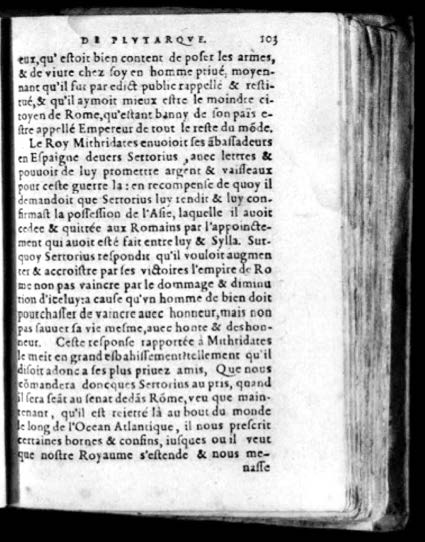 DE PLVTARQVE. 103
eux,qu' estoit bien content de poser les armes,
& de viure chez soy en homme priué, moyen-
nant qu'il fut par edict public rappellé & resti-
tué,& qu'il aymoit mieux estre le moindre ci-
toyen de Rome,qu'estant banny de son païs e-
stre appellé Empereur de tout le reste du mõde.
Le Roy Mithridates enuoioit ses ãbassadeurs
en Espaigne deuers Sertorius ,auec lettres &
pouuoir de luy promettre argent & vaisseaux
pour ceste guerre la : en recompense de quoy il
demandoit que Sertorius luy rendit & luy con-
firmast la possession de l'Asie, laquelle il auoit
cedee & quittée aux Romains par l'appoincte-
ment qui auoit esté fait entre luy & Sylla. Sur-
quoy Sertorius respondit qu'il vouloit augmen
ter & accroistre par ses victoires l'empire de Ro
me non pas vaincre par le dommage & diminu
tion d'iceluy:a cause qu'vn homme de bien doit
pourchasser de vaincre auec honneur,mais non
pas sauuer sa vie mesme,auec honte & deshon-
neur. Ceste response rapportée à Mithridates
le meit en grand esbahissement:tellement qu'il
disoit adonc a ses plus priuez amis, Que nous
cõmandera doncques Sertorius au pris, quand
il sera seãt au senat dedãs Rõme, veu que main-
tenant, qu'il est reietté là au bout du monde
le long de l'Ocean Atlantique, il nous prescrit
certaines bornes & confins, iusques ou il veut
que nostre Royaume s'estende & nous me-
nasse